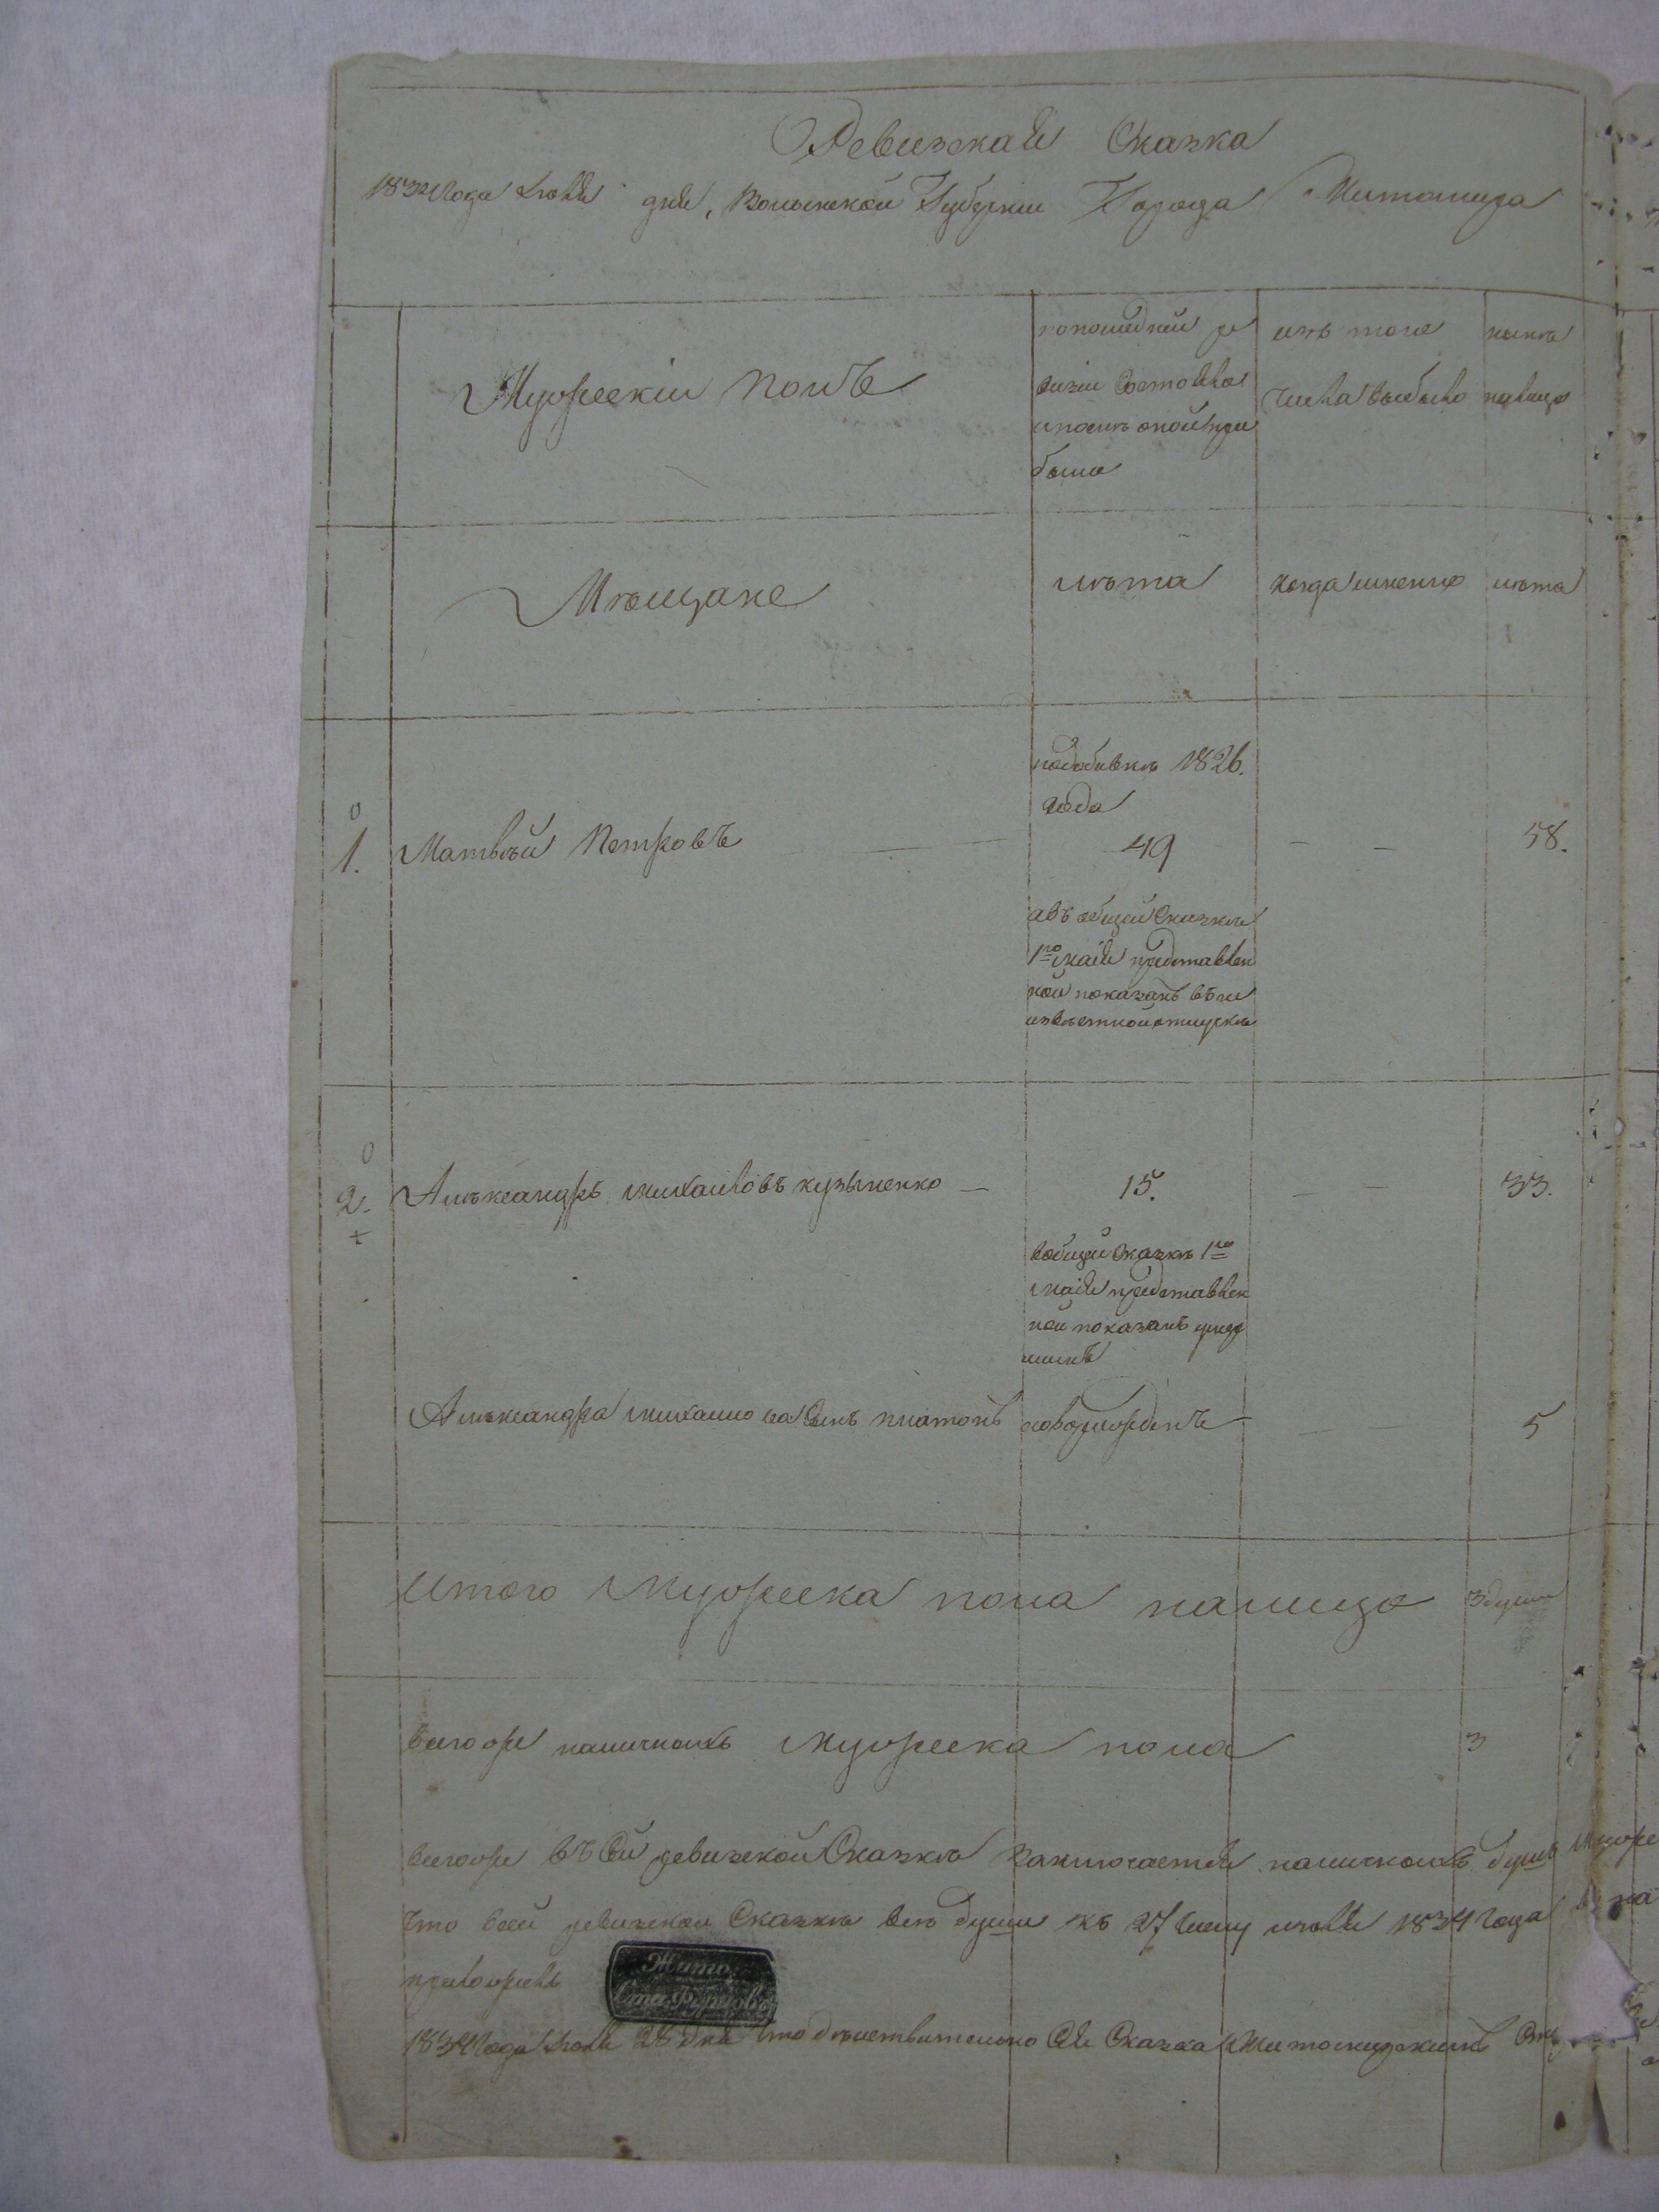 Ревизская Сказка
1834 Года Июля дня, Волынской Губернии Города Житомира
Мужескій полъ
по последней ре
визіи состояло
и после оной при
было
изъ того
числа выбыло
ныне
налицо
Мѣщане
лѣта
когда именно
лѣта
1826.
года
1. Матвѣй Петровъ 49 58.
а въ общей Сказкѣ
1го маія представлен
ной показанъ въ не
извѣстной отлучкѣ
2. Алѣксандръ михаиловъ кузьменко 15. 33.
в общей Сказкѣ 1го
маія представлен
ной показанъ умер
шимъ
Алѣксандра михаилова сынъ платонъ новорожденъ 5
Итого мужеска пола налицо 3 души
Всего же наличныхъ мужеска пола 3
Всего же въ сей ревизской Сказкѣ заключается наличныхъ душъ
Что в сей ревизской Сказкѣ всѣ души къ 27 июля 1834 года
Жито
1834 Года Июля 28 дня что действительно сія Сказка Житомирскимъ